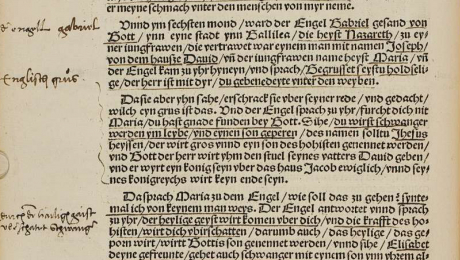 er meyne schmach unter den menschen von myr neme.
Vnnd ym sechsten mond / ward der Engel Gabriel gesand von
engell gabriel
Gott / ynn eyne stadt ynn Gallilea / die heyst Nazareth / zu ey-
ner iungfrawen / die vertrawet war eynem man mit namen Joseph /
von dem hausze Dauid / vñ der iungfraw name heyst Maria / vñ
der Engel kam zu yhr hyneyn / vnd sprach / Gegrusset seystu holdseli-
Englisch grůs.
ge / der herr ist mit dyr / du gebenedeyte vnter den weyben.
Da sie aber yhn sahe / erschrack sie vber seyner rede / vnd gedacht /
wilch eyn grus ist das. Vnd der Engel sprach zu yhr / furcht dich nit
Maria / du hast gnade funden bey Gott. Sihe / du wirst schwanger
werden ym leybe / vnd eynen son geperen / des namen solltu Jhesus
heyssen / der wirt gros vnnd eyn son des hohisten genennet werden /
vnd Gott der herr wirt yhm den stuel seynes vatters Dauid geben /
vnd er wyrt eyn konig seyn vber das haus Jacob ewiglich / vnnd sey-
nes konigreychs wirt keyn ende seyn.
Da sprach Maria zu dem Engel / wie soll das zu gehen? synte-
mal ich von keynem man weys. Der Engel antwortet vnnd sprach
zu yhr / der heylige geyst wirt komen vber dich / vnd die krafft des ho-
histen / wirt dich vbirschatten / darumb auch / das heylige / das ge-
porn wirt / wirtt Gottis son genennet werden / vnnd sihe / Elisabet
deyne gefreunte / gehet auch schwanger mit eynem son ynn yhrem al-